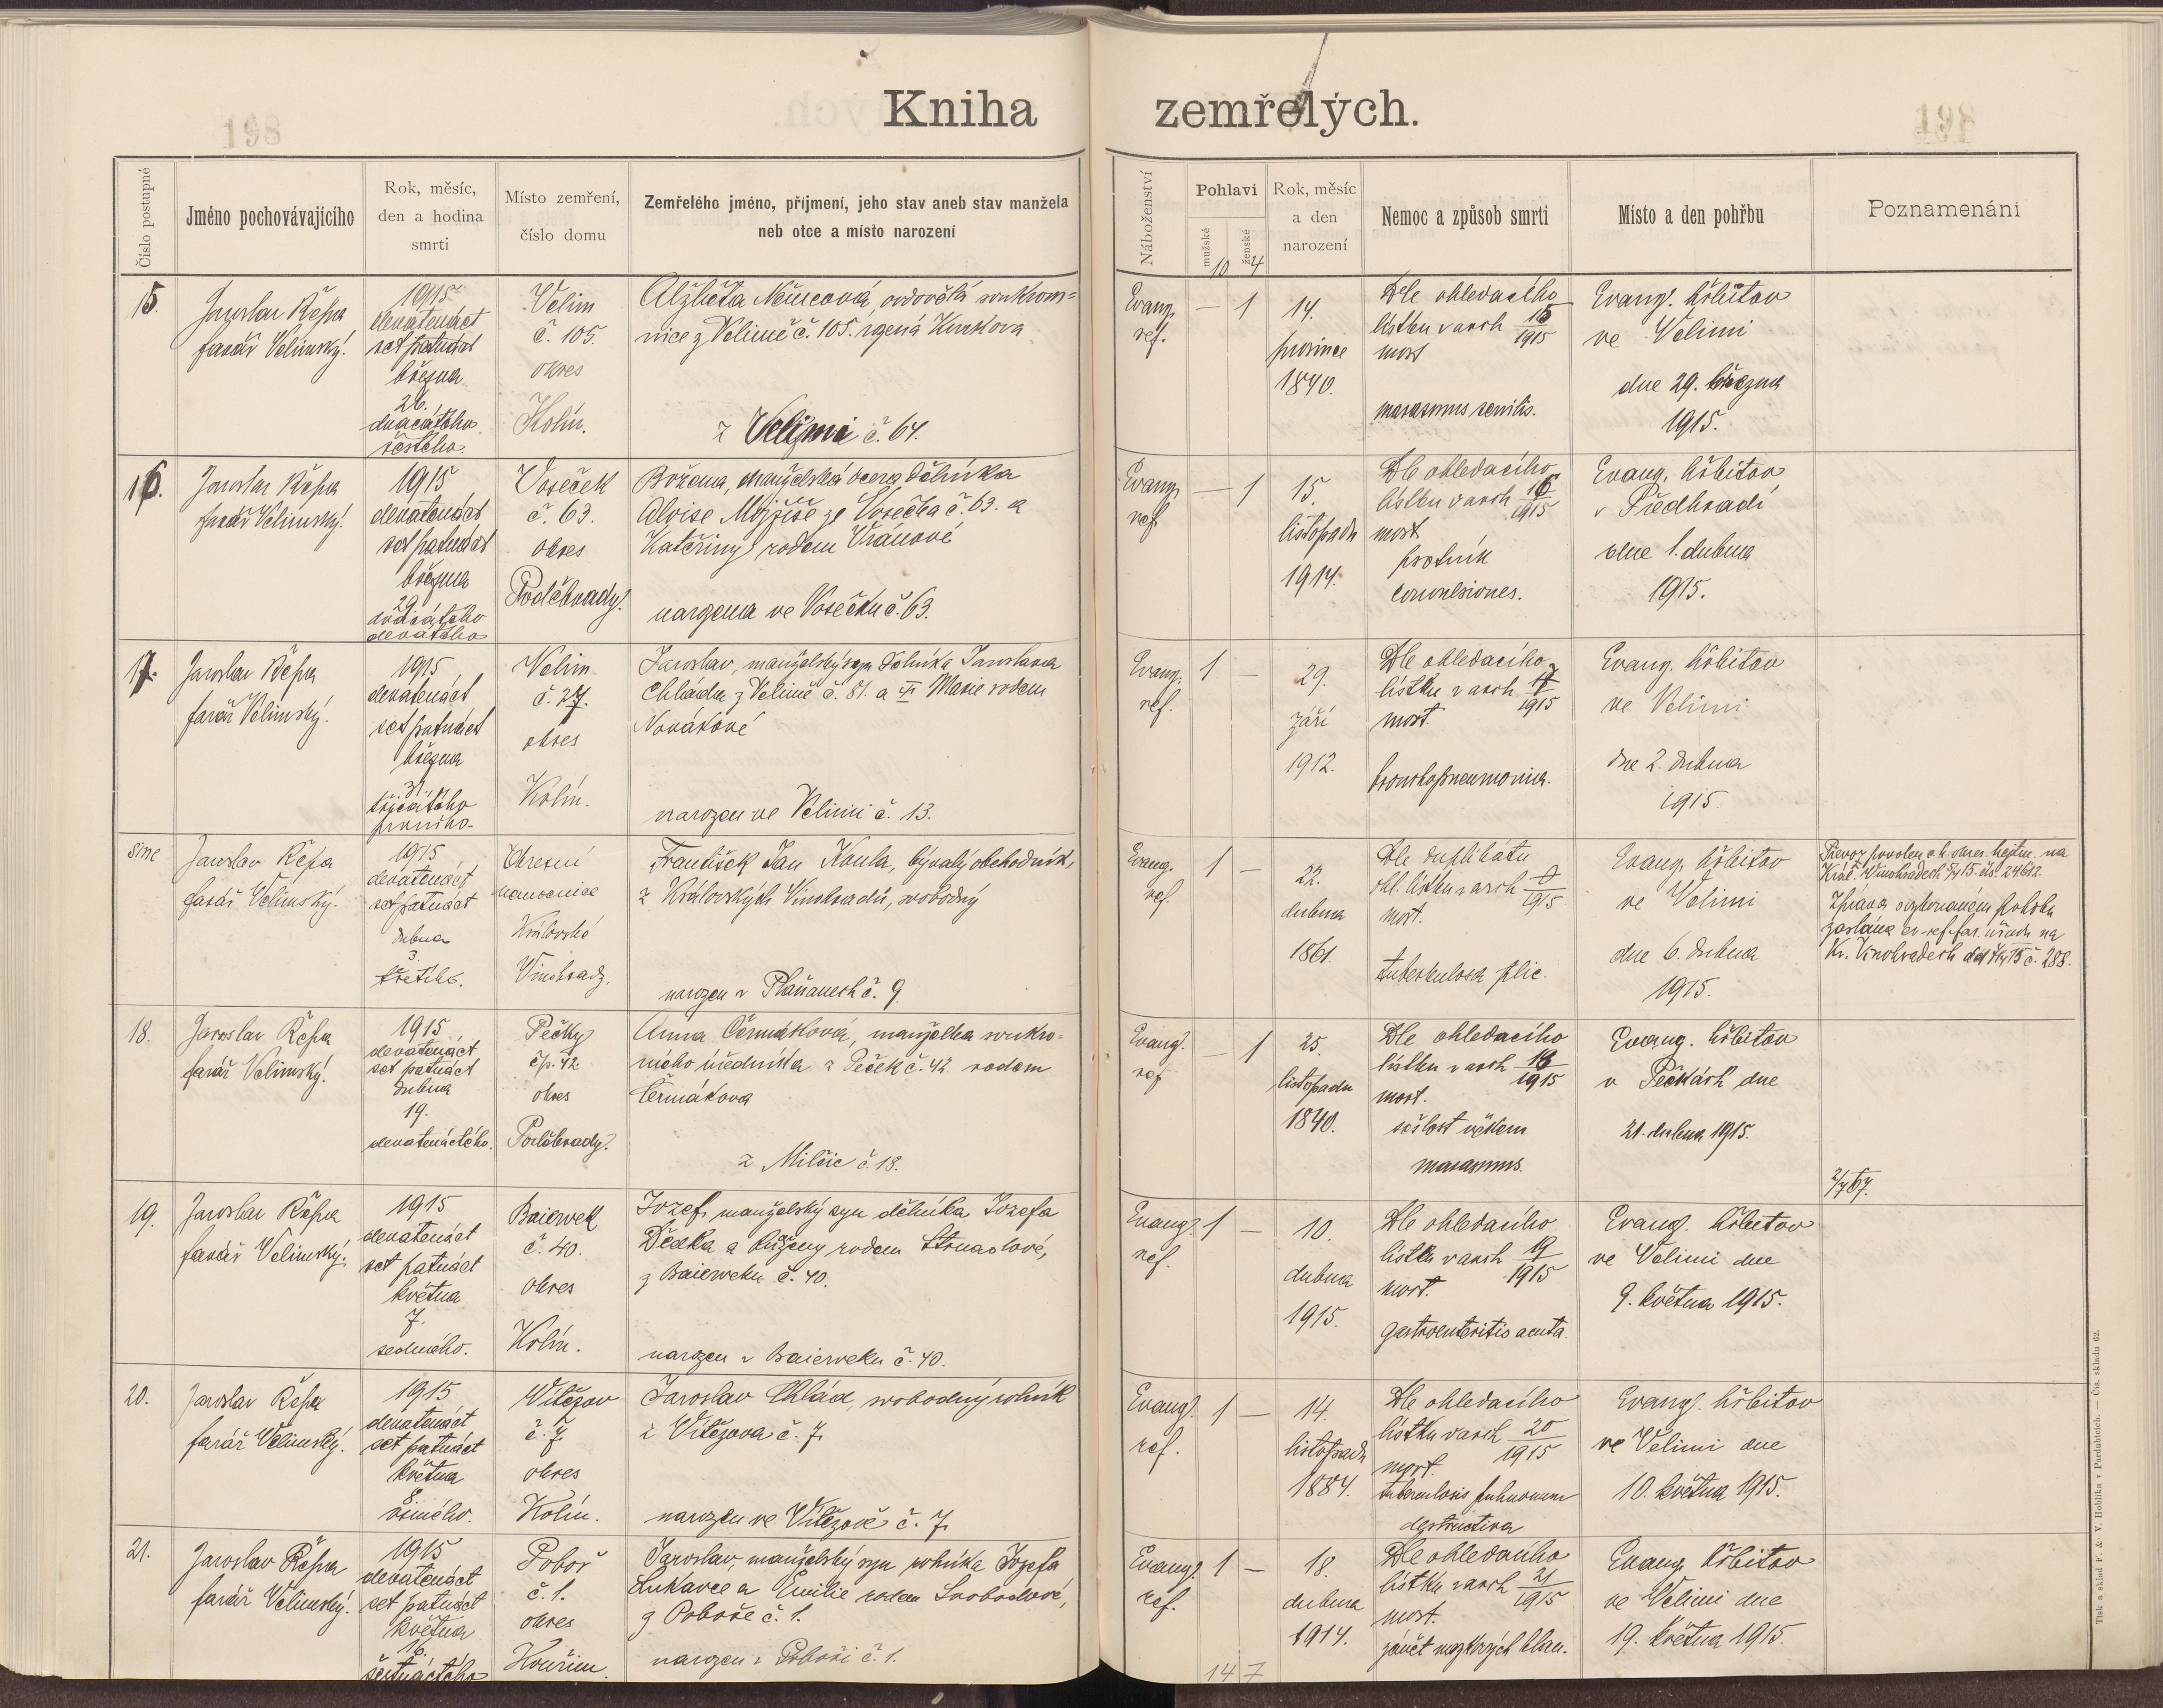 Kniha zemřelých.
198
198
Číslo postupné
Jméno pochovávajícího
Rok, měsíc, den a hodina smrti
Místo zemření, číslo domu
Zemřelého jméno, příjmení, jeho stav aneb stav manžela neb otce a místo narození
Náboženství
Pohlaví
mužské
ženské
Rok, měsíc a den narození
Nemoc a způsob smrti
Místo a den pohřbu
Poznamenání
10 4
15.
Jaroslav Řepa
farář Velimský.
1915
devatenáct
set patnáct
března
26.
dvacátého
šestého.
Velim
č. 105.
okres
Kolín.
Alžběta Němcová, ovdovělá soukrom=
nice z Velimě č. 105. rozená
z Velimi č. 64.
Evang.
ref.
— 1
14.
prosince
1840.
Dle ohledacího
lístku v arch 15/1915
mort
marasmus senilis.
Evang. hřbitov
ve Velimi
dne 29. března
1915.
16.
Jaroslav Řepa
farář Velimský.
1915
devatenáct
set patnáct
března
29.
dvacátého
devátého
Voseček
č. 63.
okres
Poděbrady.
Božena, manželská dcera dělníka
Aloise Mojžíše ze Vosečka č. 63. a
Kateřiny rodem Vránové
narozena ve Vosečku č. 63.
Evang.
ref.
— 1
15.
listopadu
1914.
Dle ohledacího
lístku v arch 16/1915
mort
psotník
convulsiones.
Evang. hřbitov
v Předhradí
dne 1. dubna
1915.
17.
Jaroslav Řepa
farář Velimský.
1915
devatenáct
set patnáct
března
31.
třicátého
prvního.
Velim
č. 27.
okres
Kolín.
Jaroslav, manželský syn dělníka Jaroslava
Chláda z Velimě č. 81. a Marie rodem
Novákové
narozen ve Velimi č. 13.
Evang.
ref.
1 —
29.
září
1912.
Dle ohledacího
lístku v arch 17/1915
mort.
bronchopneumonia.
Evang. hřbitov
ve Velimi
dne 2. dubna
1915.
sine
Jaroslav Řepa
farář Velimský.
1915
devatenáct
set patnáct
dubna
3.
třetího.
Okresní
nemocnice
Královské
Vinohrady.
František Jan Koula, bývalý obchodník,
z Královských Vinohradů, svobodný
narozen v Plaňanech č. 9.
Evang.
ref.
1 —
22.
dubna
1861.
Dle duplikátu
ohl. lístku v arch /1915
mort.
tuberkulosa plic.
Evang. hřbitov
ve Velimi
dne 6. dubna
1915.
Převoz povolen c. k. okres. hejtm. na
Král. Vinohradech 15 čís. 24612.
Zpráva o vykonaném pohřbu
zaslána ev.-ref. far. úřadu na
Kr. Vinohradech 15 č. 288.
18.
Jaroslav Řepa
farář Velimský.
1915
devatenáct
set patnáct
dubna
19.
devatenáctého.
Pečky
čp. 42.
okres
Poděbrady.
Anna Čermáková, manželka soukro=
mého úředníka z Peček č. 42 rodem
Čermákova
z Milčic č. 18.
Evang.
ref
— 1
25.
listopadu
1840.
Dle ohledacího
lístku v arch 18/1915
mort.
sešlost věkem
marasmus.
Evang. hřbitov
v Pečkách dne
21. dubna 1915.
2/7 67.
19.
Jaroslav Řepa
farář Velimský.
1915
devatenáct
set patnáct
května
7.
sedmého.
Baierwek
č. 40.
okres
Kolín.
Jozef, manželský syn dělníka Jozefa
Dědka a Růženy rodem Strnadové,
z Baierweku č. 40.
narozen v Baierweku č. 40.
Evang.
ref.
1 —
10.
dubna
1915.
Dle ohledacího
lístku v arch 19/1915
mort.
gastroenteritis acuta.
Evang. hřbitov
ve Velimi dne
9. května 1915.
20.
Jaroslav Řepa
farář Velimský.
1915
devatenáct
set patnáct
května
8.
osmého.
Vítězov
č. 7.
okres
Kolín.
Jaroslav Chlád, svobodný rolník
z Vítězova č. 7.
narozen ve Vítězově č. 7.
Evang.
ref.
1 —
14.
listopadu
1884.
Dle ohledacího
lístku v arch 20/1915
mort.
tuberculosis pulmonum
destructiva
Evang. hřbitov
ve Velimi dne
10. května 1915.
21.
Jaroslav Řepa
farář Velimský.
1915
devatenáct
set patnáct
května
16.
šestnáctého
Poboř
č. 1.
okres
Kouřim.
Jaroslav, manželský syn rolníka Jozefa
Lukavce a Emilie rodem Svobodové,
z Poboře č. 1.
narozen v Poboři č. 1.
Evang.
ref.
1 —
18.
dubna
1914.
Dle ohledacího
lístku v arch 21/1915
mort.
zánět mozkových blan.
Evang. hřbitov
ve Velimi dne
19. května 1915.
14 7
Tisk a sklad F. & V. Hoblíka v Pardubicích. — Čís. skladu 62.